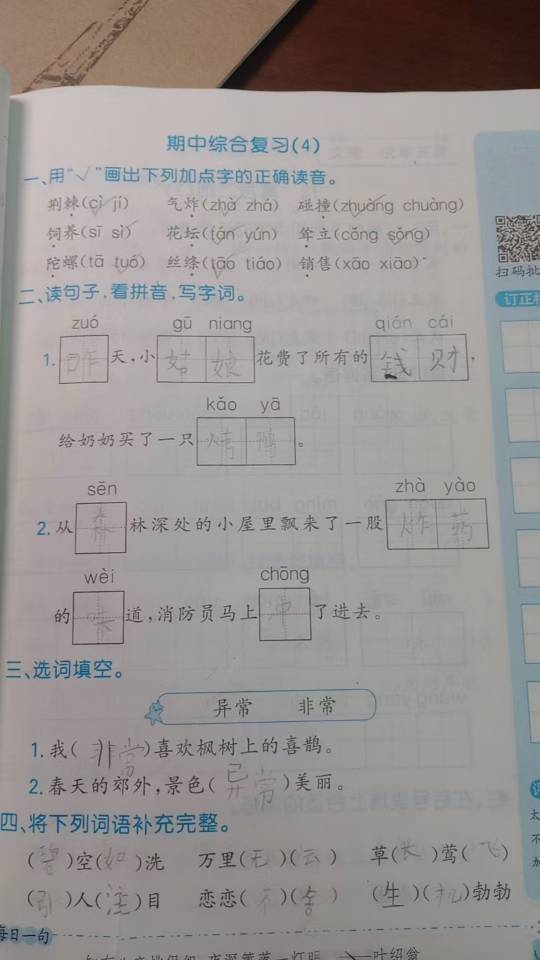 期中综合复习(4)
一、用“√”画出下列加点字的正确读音。
荆棘(cì jí) 气炸(zhà zhá) 碰撞(zhuàng chuàng)
饲养(sī sì) 花坛(tán yún) 耸立(cǒng sǒng)
陀螺(tā tuó) 丝绦(tāo tiáo) 销售(xāo xiāo)
扫码批
订正栏
二、读句子,看拼音,写字词。
zuó gū niang qián cái
1. 昨天,小姑娘花费了所有的钱财,
kǎo yā
给奶奶买了一只烤鸭。
sēn zhà yào
2. 从森林深处的小屋里飘来了一股炸药
wèi chōng
的味道,消防员马上冲了进去。
三、选词填空。
异常 非常
1. 我(非常)喜欢枫树上的喜鹊。
2. 春天的郊外,景色(异常)美丽。
四、将下列词语补充完整。
(碧)空(如)洗 万里(无)(云) 草(长)莺(飞)
(引)人(注)目 恋恋(不)(舍) (生)(机)勃勃
每日一句